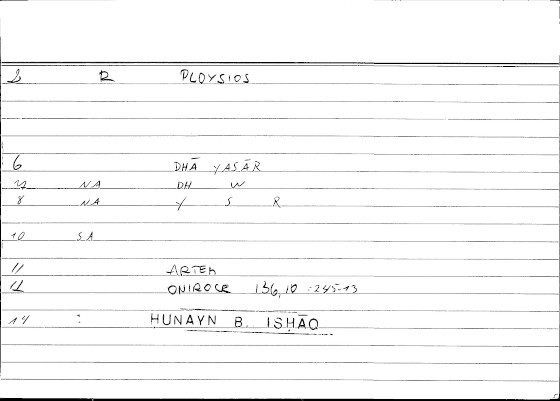 2 R PLOYSIOS
6 DHĀ YASĀR
7 NA DH W
8 NA Y S R
10 SA
11 ARTEM
12 ONIROCR 136,10 :245-13
14 : HUNAYN B. ISHĀQ